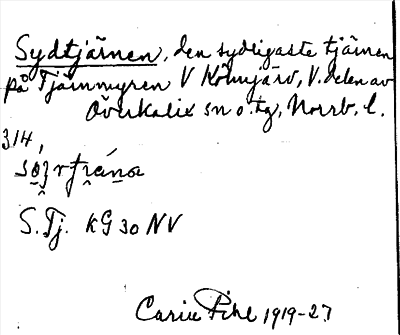 Sydtjärnen, den sydligaste tjärnen
på Tjärnmyren V Kölmjärv, V. delen av
Överkalix sn o. tg, Norrb. l.
314,
S.Tj. KG 30 NV
Carin Pihl 1919-27